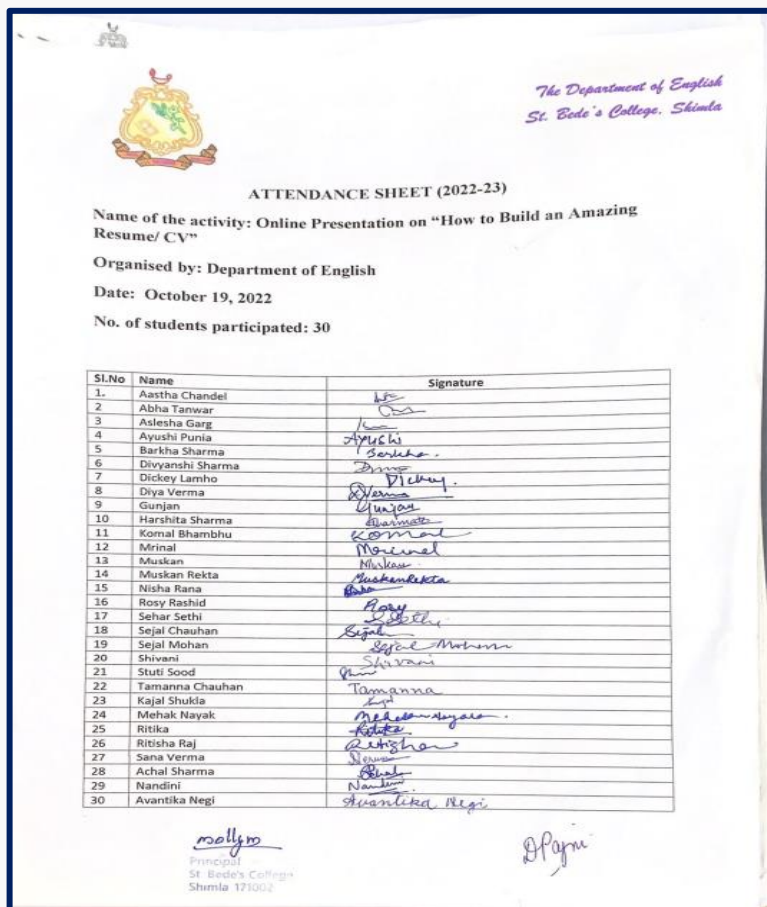 The Department of English
St. Bede's College, Shimla
ATTENDANCE SHEET (2022-23)
Name of the activity: Online Presentation on “How to Build an Amazing
Resume/ CV”
Organised by: Department of English
Date: October 19, 2022
No. of students participated: 30
Sl.No Name Signature
1. Aastha Chandel
2 Abha Tanwar
3 Aslesha Garg
4 Ayushi Punia Ayushi
5 Barkha Sharma Barkha.
6 Divyanshi Sharma
7 Dickey Lamho Dickey.
8 Diya Verma DVerma
9 Gunjan Gunjan
10 Harshita Sharma
11 Komal Bhambhu Komal
12 Mrinal Mrinal
13 Muskan Muskan
14 Muskan Rekta MuskanRekta
15 Nisha Rana
16 Rosy Rashid Rosy
17 Sehar Sethi SSethi
18 Sejal Chauhan Sejal
19 Sejal Mohan Sejal Mohan
20 Shivani Shivani
21 Stuti Sood
22 Tamanna Chauhan Tamanna
23 Kajal Shukla
24 Mehak Nayak
25 Ritika Ritika
26 Ritisha Raj
27 Sana Verma
28 Achal Sharma
29 Nandini Nandini
30 Avantika Negi Avantika Negi
Principal
St Bede's College
Shimla 171002